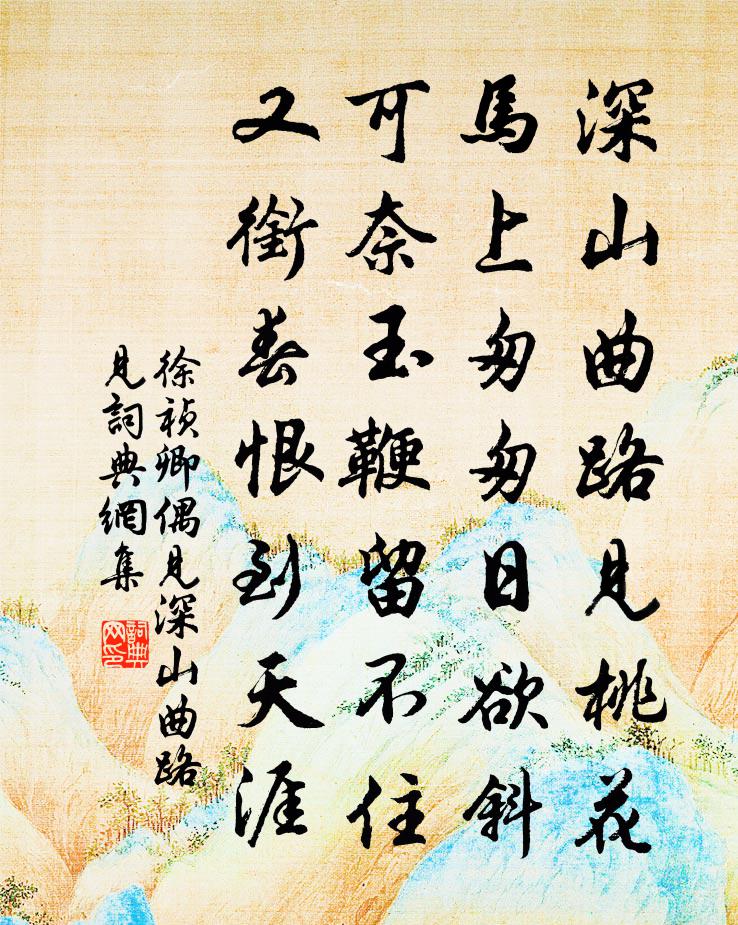 深山曲路見桃花
馬上匆匆日欲斜
可奈玉鞭留不住
又銜春恨到天涯
徐禎卿偶見深山曲路
見詞典網集
詞典網印